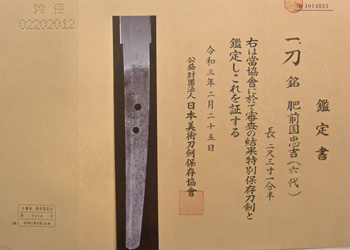 鑑定書
一、刀 銘 肥前国忠吉(六代)
長 二尺三寸一分半
右は當協會に於て審査の結果特別保存刀剣と
鑑定しこれを証する
令和三年二月二十五日
公益財團法人 日本美術刀剣保存協會
特保
02202012
№ 1014633